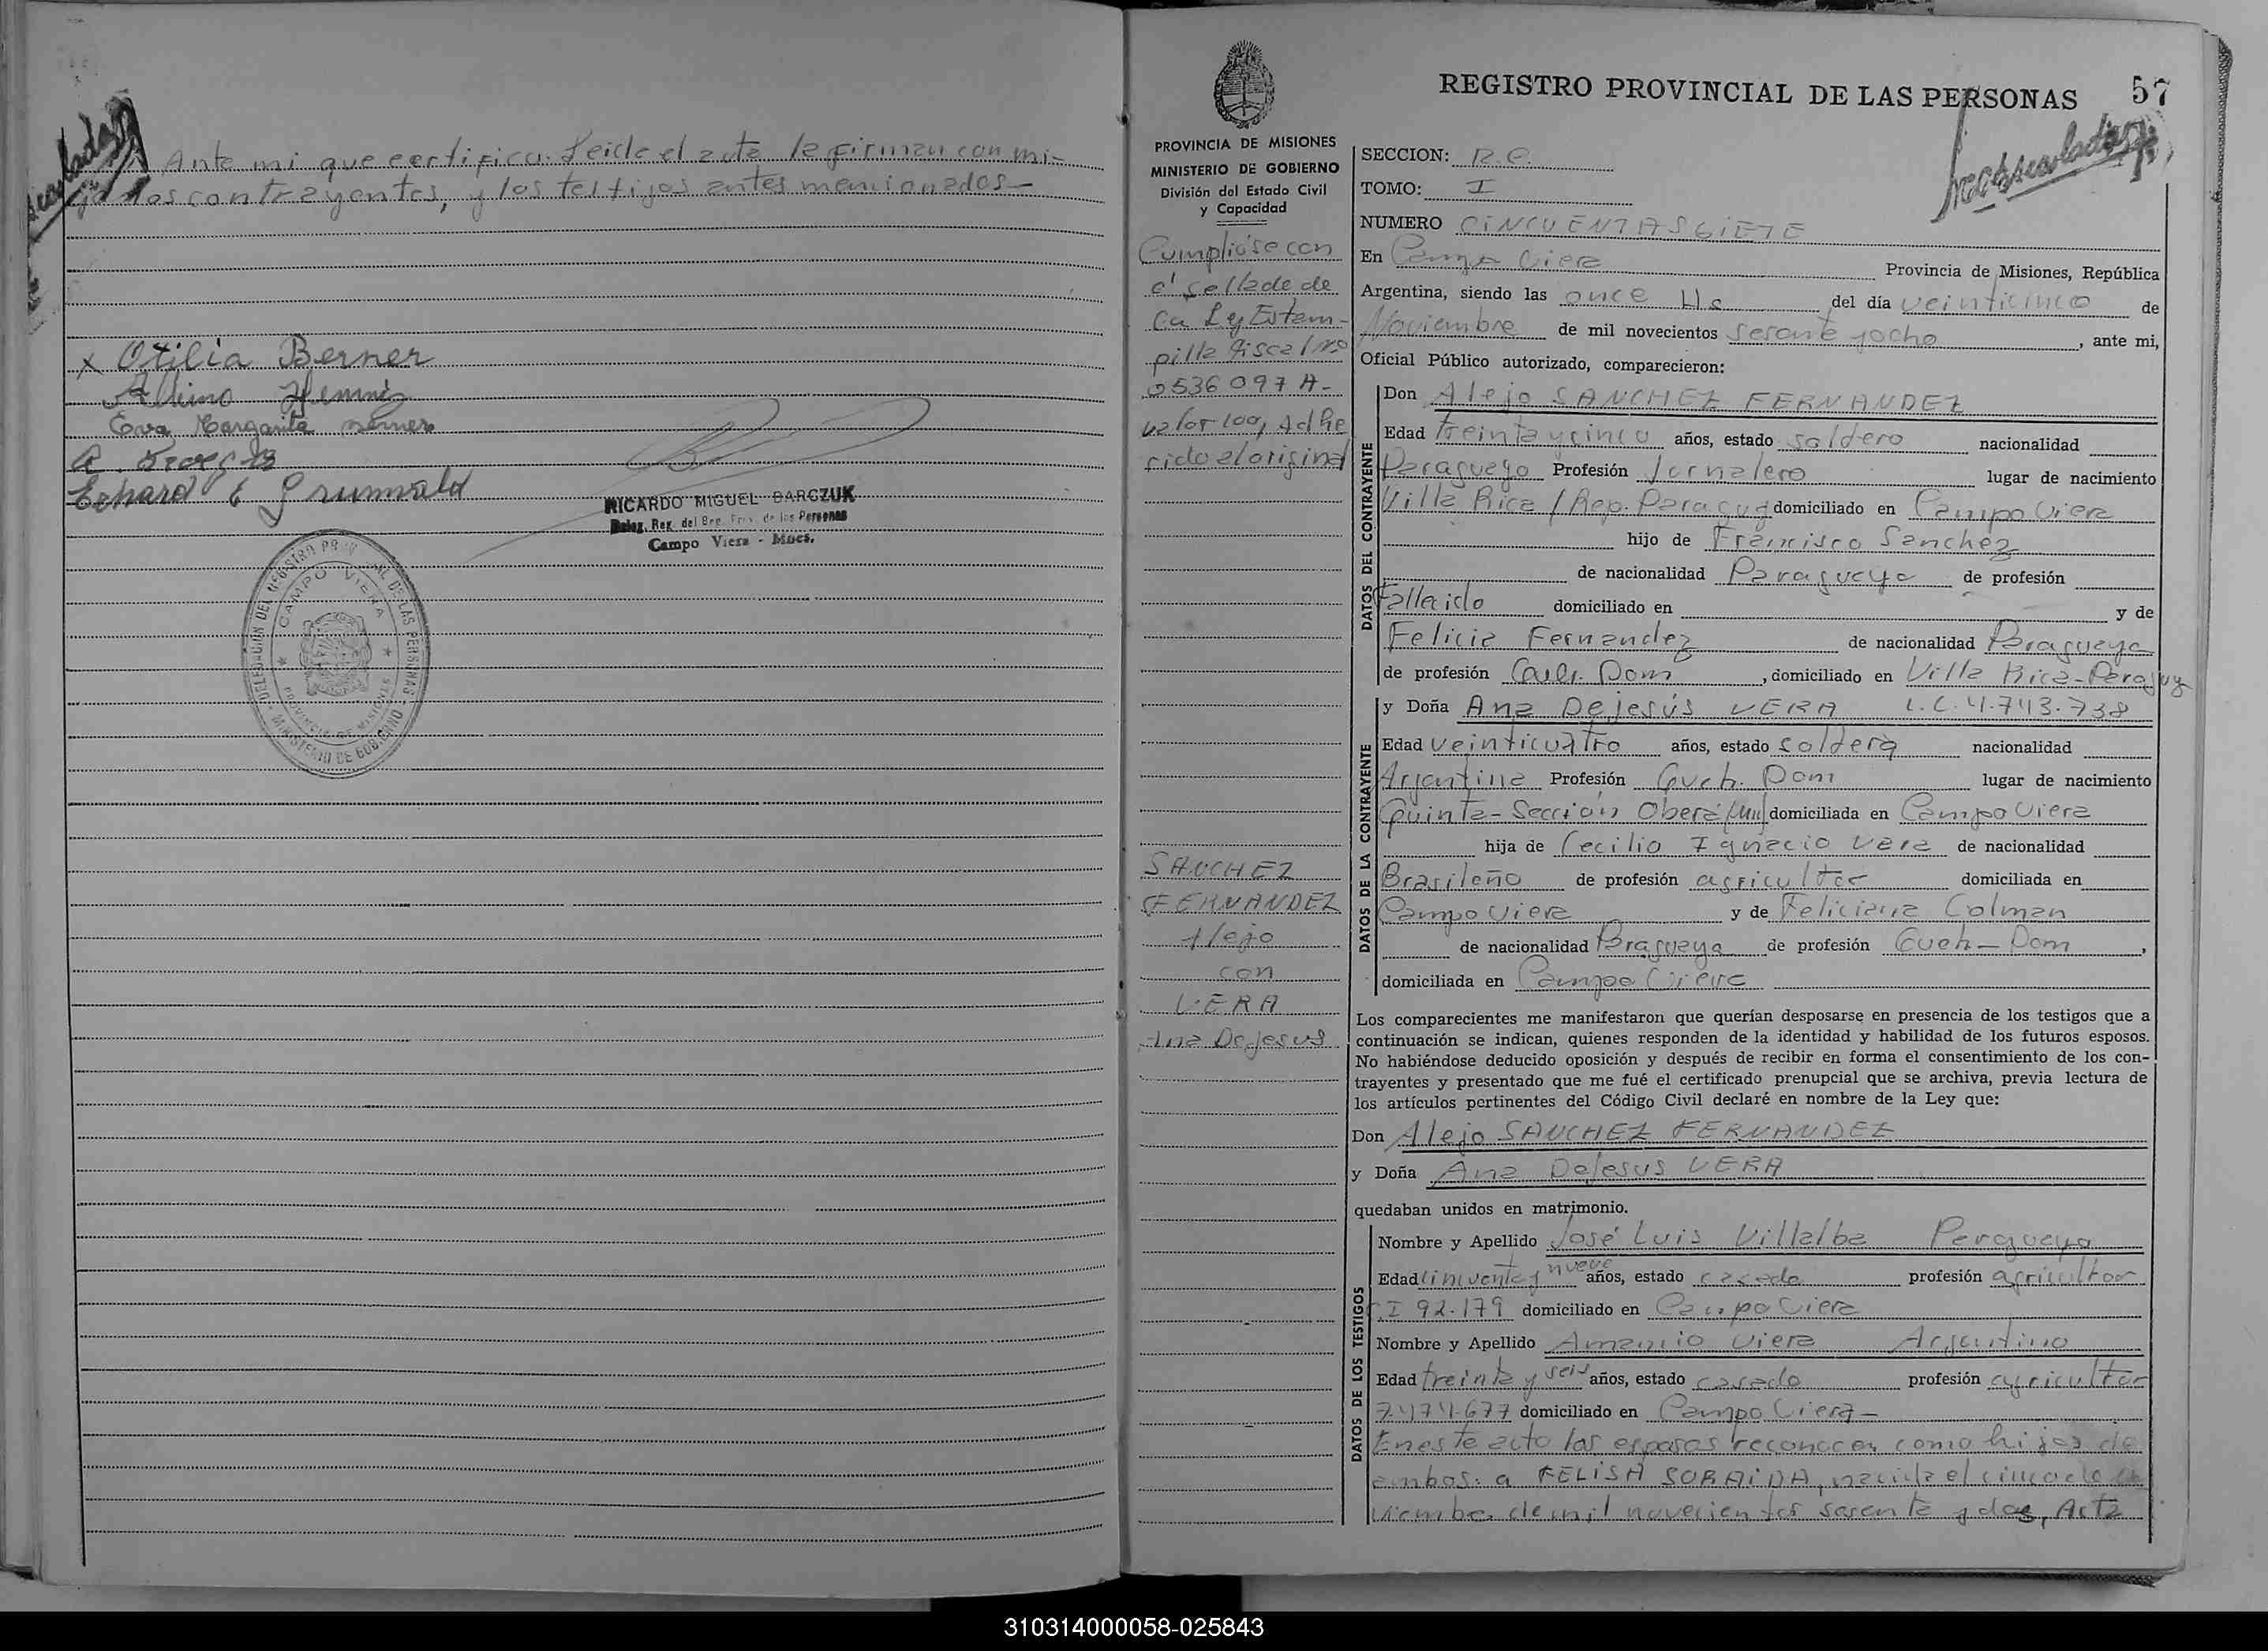 Ante mi que certifica. Leida el acta la firman conmi-
go los contrayentes, y los testigos antes mencionados-
x Otilia Berner
Albino Hennig
Eva Margarita Berner
Grunwald
RICARDO MIGUEL BARCZUK
Deleg. Reg. del Reg. Prov. de las Personas
Campo Viera - Mnes.
DELEGACION DEL REGISTRO PROVINCIAL DE LAS PERSONAS
CAMPO VIERA
PROVINCIA DE MISIONES
MINISTERIO DE GOBIERNO
REGISTRO PROVINCIAL DE LAS PERSONAS 57
PROVINCIA DE MISIONES
MINISTERIO DE GOBIERNO
División del Estado Civil
y Capacidad
Cumplióse con
el sellado de
Ley Estam-
pilla fiscal Nro
0536097 A-
valor 100, Adhe
rido al original
SANCHEZ
FERNANDEZ
Alejo
con
VERA
Ana Dejesus
SECCION: R.C.
TOMO: I
NUMERO CINCUENTASIETE
En Campo Viera Provincia de Misiones, República
Argentina, siendo las once Hs del día veinticinco de
Noviembre de mil novecientos sesenta yocho, ante mi,
Oficial Público autorizado, comparecieron:
DATOS DEL CONTRAYENTE
Don Alejo SANCHEZ FERNANDEZ
Edad treinta ycinco años, estado soldero nacionalidad
Paraguayo Profesión Jornalero lugar de nacimiento
Villa Rica /Rep. Paraguay domiciliado en Campo Viera
hijo de Francisco Sanchez
de nacionalidad Paraguaya de profesión
Fallecido domiciliado en y de
Felicia Fernandez de nacionalidad Paraguaya
de profesión Dom, domiciliado en Villa Rica-Paraguay
DATOS DE LA CONTRAYENTE
y Doña Ana Dejesús VERA L.C.4.743.738
Edad veinticuatro años, estado soldera nacionalidad
Argentina Profesión Queh. Dom lugar de nacimiento
Quinta-Sección Oberá domiciliada en Campo Viera
hija de Cecilio Ignacio Vera de nacionalidad
Brasileño de profesión agricultor domiciliada en
Campo Viera y de Feliciana Colman
de nacionalidad Paraguaya de profesión Queh-Dom,
domiciliada en Campo Viera
Los comparecientes me manifestaron que querían desposarse en presencia de los testigos que a
continuación se indican, quienes responden de la identidad y habilidad de los futuros esposos.
No habiéndose deducido oposición y después de recibir en forma el consentimiento de los con-
trayentes y presentado que me fué el certificado prenupcial que se archiva, previa lectura de
los artículos pertinentes del Código Civil declaré en nombre de la Ley que:
Don Alejo SANCHEZ FERNANDEZ
y Doña Ana Dejesus VERA
quedaban unidos en matrimonio.
DATOS DE LOS TESTIGOS
Nombre y Apellido José Luis Villalba Paraguayo
Edad cincuenta y nueve años, estado casado profesión agricultor
C.I 92.179 domiciliado en Campo Viera
Nombre y Apellido Amancio Viera Argentino
Edad treinta y seis años, estado casado profesión agricultor
7.474.677 domiciliado en Campo Viera-
Eneste acto los esposos reconocen como hijos de
ambos: a FELISA SORAIDA, nacida el cinco de
viembre demil novecientos sesenta y dos, Acta
310314000058-025843